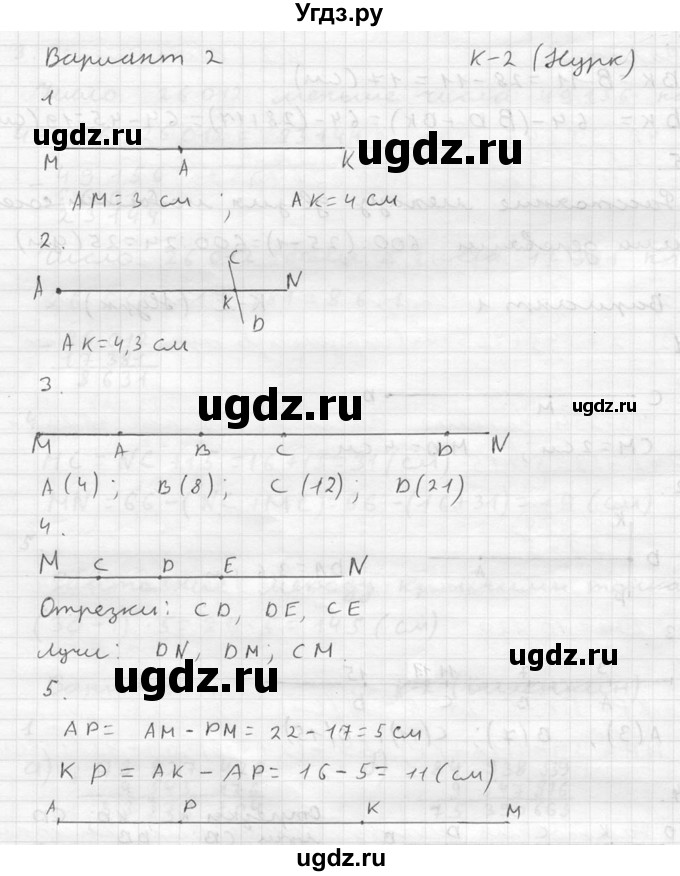 Угдз.ру
Вариант 2 К-2 (Нурк)
1
ugdz.ru ugdz.ru
M A K
AM = 3 см ; AK = 4 см
2.
C
A K N
D
AK = 4,3 см
3.
ugdz.ru ugdz.ru
M A B C D N
A (4) ; B (8) ; C (12) ; D (21)
4.
M C D E N
Отрезки: CD, DE, CE
Лучи: DN, DM; CM
ugdz.ru ugdz.ru
5.
AP = AM - PM = 22 - 17 = 5 см
KP = AK - AP = 16 - 5 = 11 (см)
A P K M
ugdz.ru
ugdz.ru